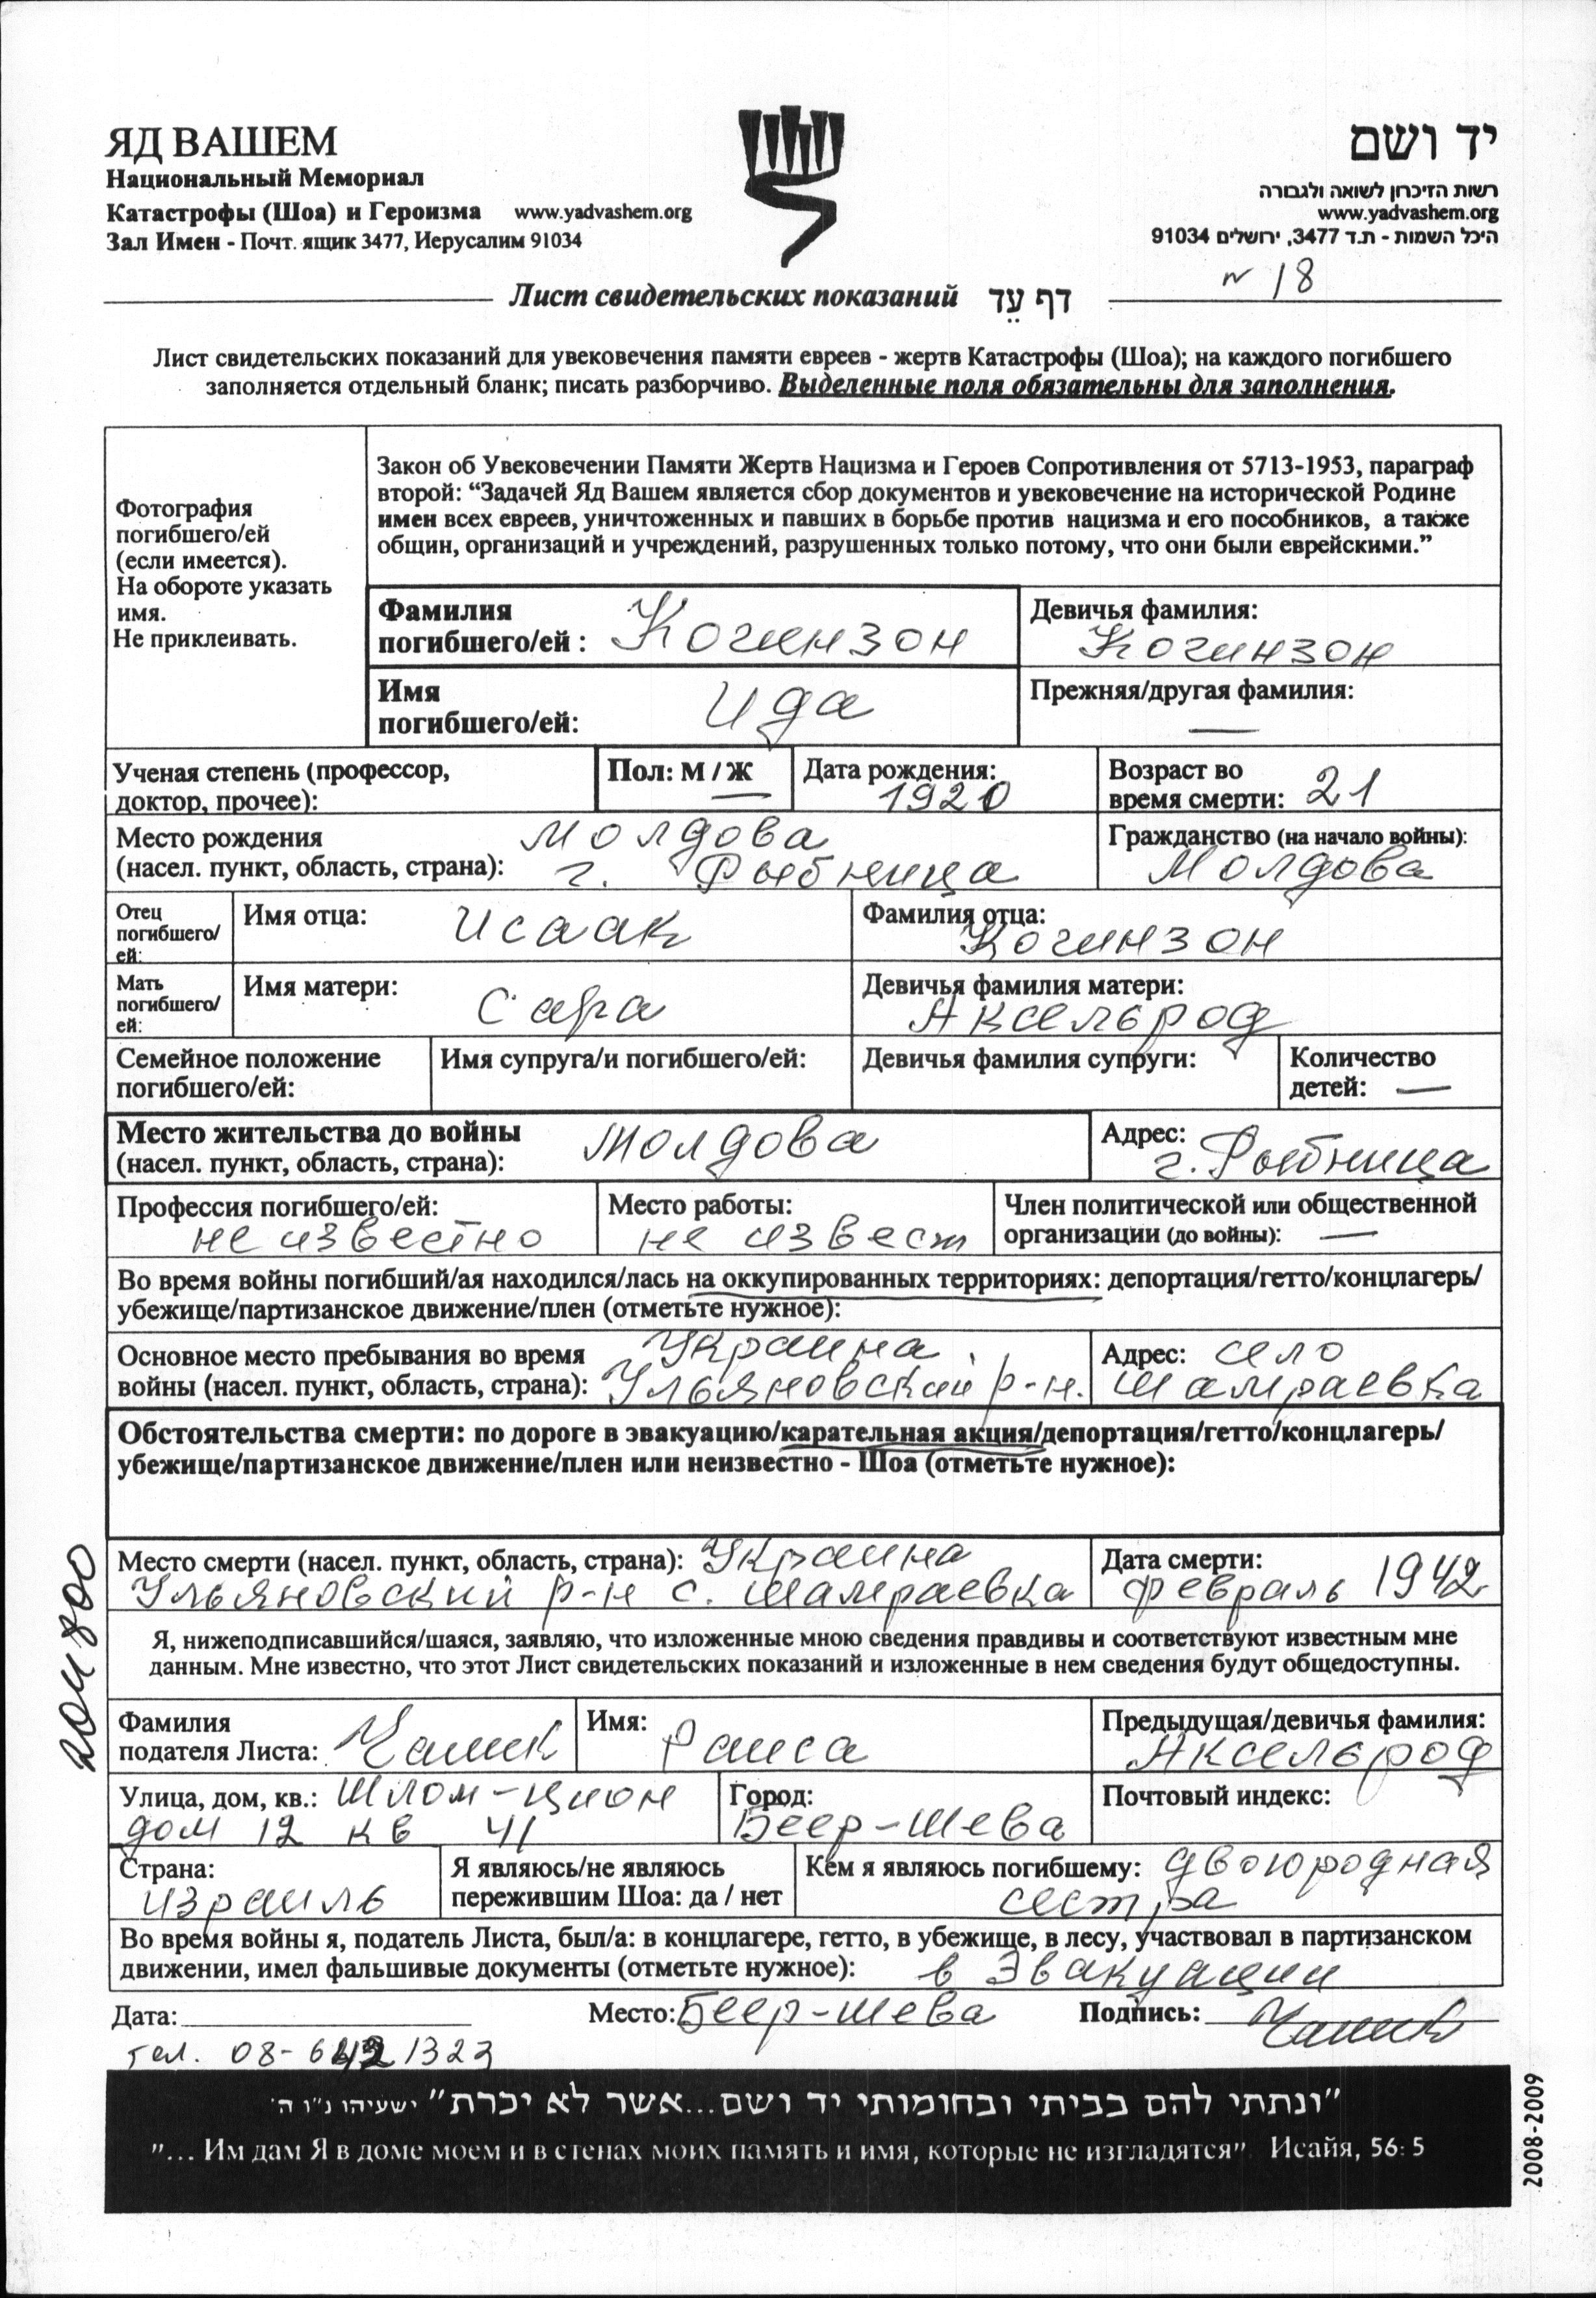 ЯД ВАШЕМ
Национальный Мемориал
Катастрофы (Шоа) и Героизма www.yadvashem.org
Зал Имен - Почт. ящик 3477, Иерусалим 91034
יד ושם
רשות הזיכרון לשואה ולגבורה
www.yadvashem.org
היכל השמות - ת.ד 3477, ירושלים 91034
N 18
Лист свидетельских показаний דף עֵד
Лист свидетельских показаний для увековечения памяти евреев - жертв Катастрофы (Шоа); на каждого погибшего
заполняется отдельный бланк; писать разборчиво. Выделенные поля обязательны для заполнения.
Фотография
погибшего/ей
(если имеется).
На обороте указать
имя.
Не приклеивать.
Закон об Увековечении Памяти Жертв Нацизма и Героев Сопротивления от 5713-1953, параграф
второй: “Задачей Яд Вашем является сбор документов и увековечение на исторической Родине
имен всех евреев, уничтоженных и павших в борьбе против нацизма и его пособников, а также
общин, организаций и учреждений, разрушенных только потому, что они были еврейскими.”
Фамилия
погибшего/ей : Когинзон
Девичья фамилия:
Когинзон
Имя
погибшего/ей: Ида
Прежняя/другая фамилия:
—
Ученая степень (профессор,
доктор, прочее):
Пол: М / Ж
Дата рождения:
1920
Возраст во
время смерти: 21
Место рождения Молдова
(насел. пункт, область, страна): г. Рыбница
Гражданство (на начало войны):
Молдова
Отец
погибшего/
ей:
Имя отца: Исаак
Фамилия отца:
Когинзон
Мать
погибшего/
ей:
Имя матери: Сара
Девичья фамилия матери:
Аксельрод
Семейное положение
погибшего/ей:
Имя супруга/и погибшего/ей:
Девичья фамилия супруги:
Количество
детей: —
Место жительства до войны Молдова
(насел. пункт, область, страна):
Адрес:
г. Рыбница
Профессия погибшего/ей:
не известно
Место работы:
не извест
Член политической или общественной
организации (до войны): —
Во время войны погибший/ая находился/лась на оккупированных территориях: депортация/гетто/концлагерь/
убежище/партизанское движение/плен (отметьте нужное):
Основное место пребывания во время Украина
войны (насел. пункт, область, страна): Ульяновский р-н.
Адрес: село
Шамраевка
Обстоятельства смерти: по дороге в эвакуацию/карательная акция/депортация/гетто/концлагерь/
убежище/партизанское движение/плен или неизвестно - Шоа (отметьте нужное):
Место смерти (насел. пункт, область, страна): Украина
Ульяновский р-н с. Шамраевка
Дата смерти:
февраль 1942
Я, нижеподписавшийся/шаяся, заявляю, что изложенные мною сведения правдивы и соответствуют известным мне
данным. Мне известно, что этот Лист свидетельских показаний и изложенные в нем сведения будут общедоступны.
Фамилия
подателя Листа: Чамик
Имя:
Раиса
Предыдущая/девичья фамилия:
Аксельрод
Улица, дом, кв.: Шлом-Цион
дом 12 кв 41
Город:
Беер-Шева
Почтовый индекс:
Страна:
Израиль
Я являюсь/не являюсь
пережившим Шоа: да / нет
Кем я являюсь погибшему: двоюродная
сестра
Во время войны я, податель Листа, был/а: в концлагере, гетто, в убежище, в лесу, участвовал в партизанском
движении, имел фальшивые документы (отметьте нужное): в Эвакуации
Дата:
Место: Беер-Шева
Подпись:
тел. 08-
"ונתתי להם בביתי ובחומותי יד ושם...אשר לא יכרת" ישעיהו נ"ו ה'
"... Им дам Я в доме моем и в стенах моих память и имя, которые не изгладятся" Исайя, 56: 5
2008-2009